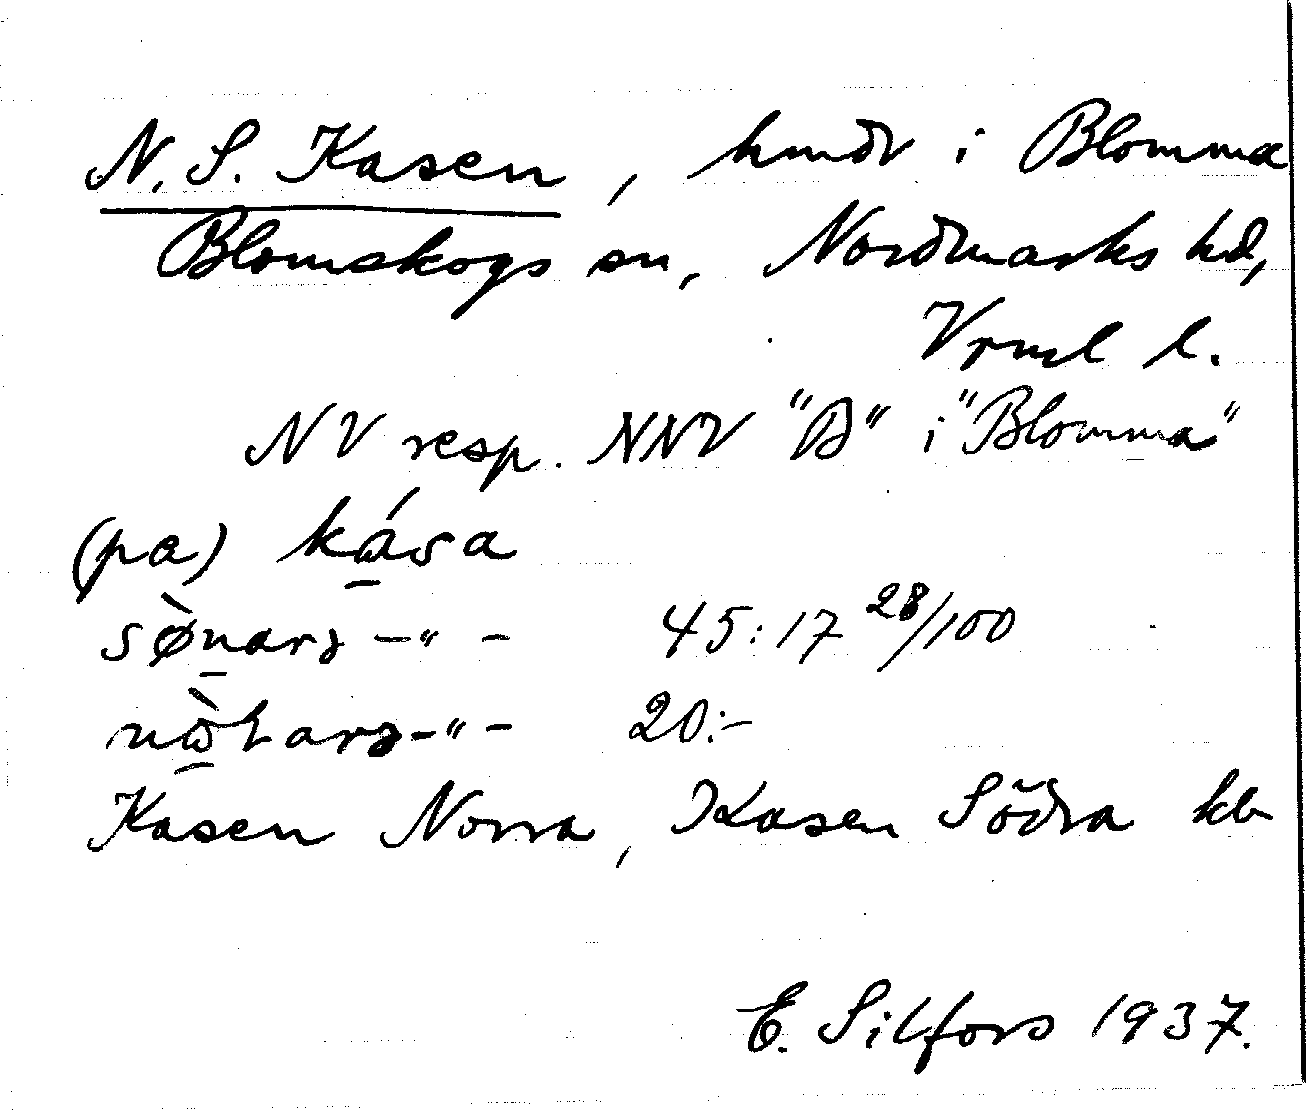 N. S. Kasen, hmdr i Blomma
Blomskogs sn, Nordmarks hd,
Vrml l.
NV resp. NNV "B" i "Blomma"
(pa) kása
sø̀narə -"-   45:17 28/100
nò̱ḷarə -"-   20:-
Kasen Norra, Kasen Södra kb
E. Silfors 1937.